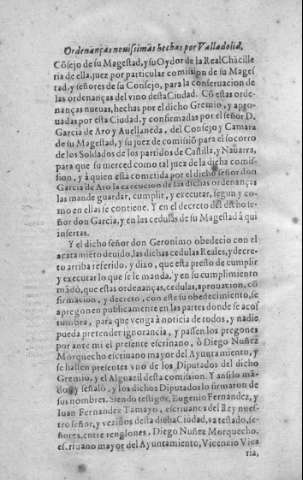 Ordenanças nouissimas hechas por Valladolid,
Cõsejo de su Magestad, y su Oydor de la Real Chãcille
ria de ella, juez por particular comission de su Mages
tad, y señores de su Consejo, para la conseruacion de
las ordenanças del vino desta Ciudad. Cõ estas orde-
nanças nueuas, hechas por el dicho Gremio, y apro-
uadas por esta Ciudad, y confirmadas por el señor D.
Garcia de Aro y Auellaneda, del Consejo y Camara
de su Magestad, y su juez de comissió para el socorro
de los Soldados de los partidos de Castilla, y Nauarra,
para que su merced como tal juez de la dicha comis-
sion, y à quien esta cometida por el dicho señor don
Garcia de Aro la execucion de las dichas ordenanças
las mande guardar, cumplir, y executar, segun y co-
mo en ellas se contiene. Y en el decreto del dicho se-
ñor don Garcia, y en las cedulas de su Magestad à qui
insertas.
Y el dicho señor don Geronimo obedecio con el
acatamiẽto deuido, las dichas cedulas Reales, y decre-
to arriba referido, y dixo, que esta presto de cumplir
y executar lo que se le manda, y en su cumplimiento
mãdò, que estas ordenanças, cedulas, aprouacion, cõ
firmacion, y decreto, con este su obedecimiento, se
apregonen publicamente en las partes donde se acos
tumbra, para que venga à noticia de todos, y nadie
pueda pretender ignorancia, y passen los pregones
por ante mi el presente escriuano, ò Diego Nuñez
Morquecho escriuano mayor del Ayuntamiento, y
se hallen presentes vno de los Diputados del dicho
Gremio, y el Alguazil desta comission. Y assi lo mã-
dò, y señalò, y los dichos Diputados lo firmaron de
sus nombres. Siendo testigos, Eugenio Fernandez, y
Iuan Fernandez Tamayo, escriuanos del Rey nues-
tro señor, y vezinos desta dicha Ciudad, va testado, se-
ñores, entre renglones, Diego Nuñez Morquecho,
escriuano mayor del Ayuntamiento, Vicencio Vica
ria,